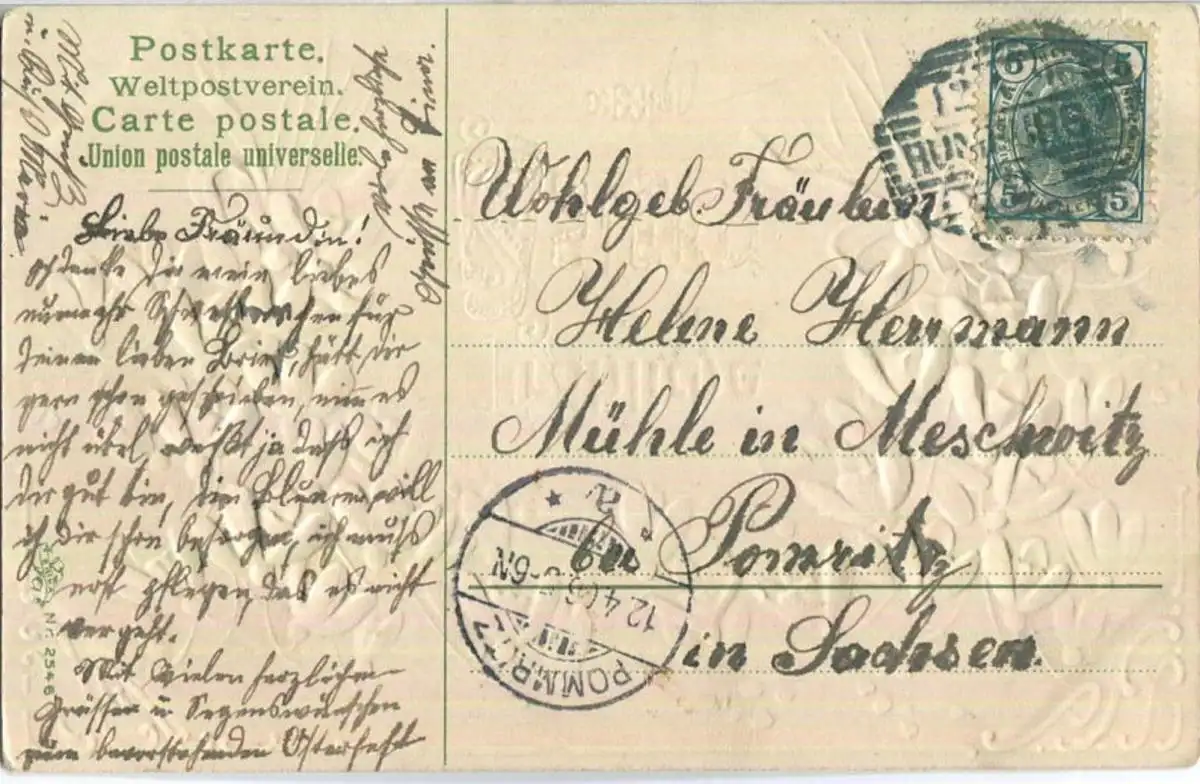 Postkarte.
Weltpostverein.
Carte postale.
Union postale universelle.
Liebe Fräundin!
ich danke Dir mein liebes
nunmehr Schwesterchen für
deinen lieben Brief, hätt dir
gern schon geschrieben, nimm es
nicht übel, weißt ja dass ich
dir gut bin, die Blumen will
ich Dir schon besorgen, ich muss
erst pflegen, das es nicht
vergeht.
Mit vielen herzlichen
Grüssen u Segenswünschen
zum bevorstehenden Osterfeste
an
u. Maria
Wohlgeb Fräulein
Helene Herrmann
Mühle in Meschwitz
bei Pomritz
in Sachsen.
5 5
5 5
POMMRITZ
12.4.06 5-6N
Nr. 2546